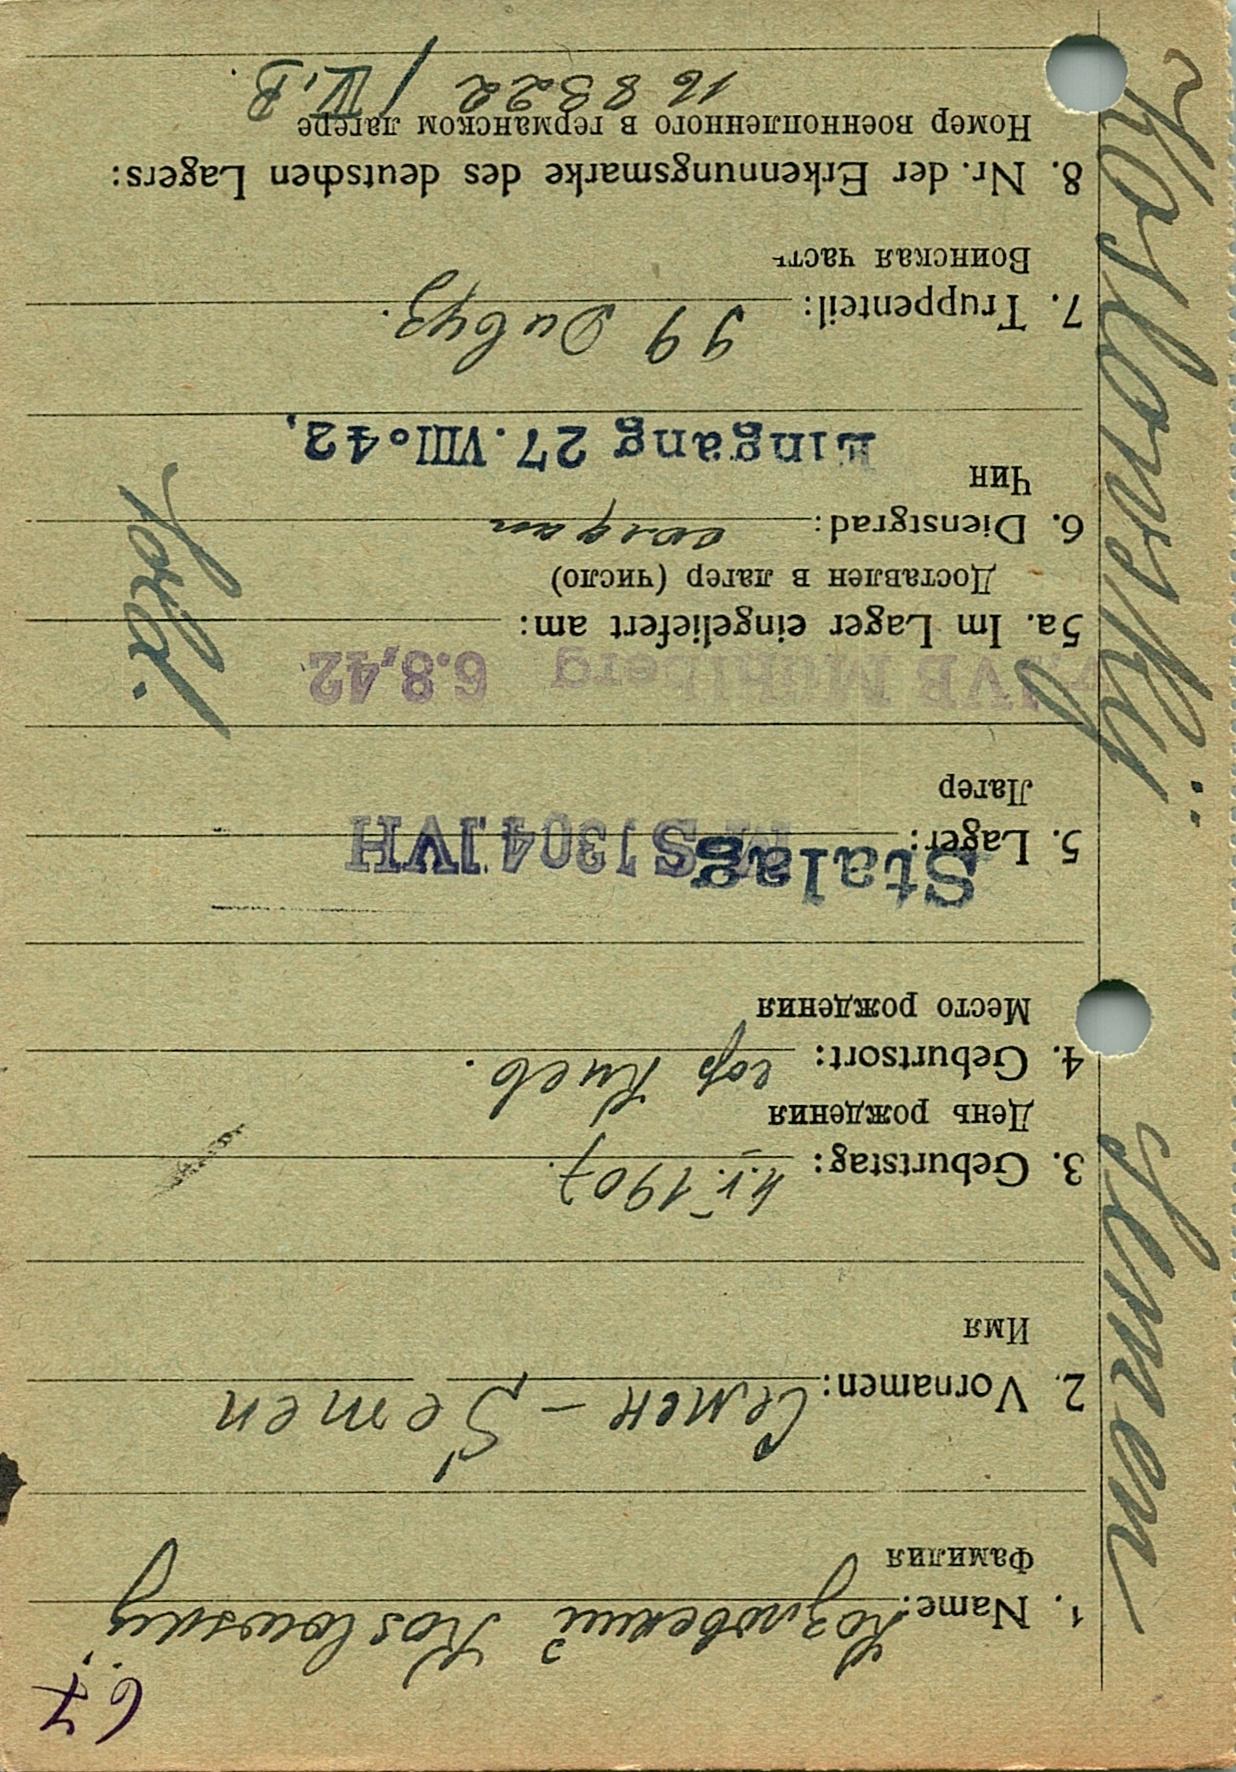 67
1. Name: Козловский Koslowskij
Фамилия
2. Vornamen: Семен – Semen
Имя
3. Geburtstag: 4.V.1907.
День рождения
4. Geburtsort: гор Киев.
Место рождения
5. Lager: Stalag 304 IVH
Лагер
IVB Mühlberg 6.8.42
5a. Im Lager eingeliefert am:
Доставлен в лагер (число)
6. Dienstgrad: солдат
Чин
Sold.
Eingang 27. VIII. 42.
7. Truppenteil: 99 Дивуз.
Воинская часть
8. Nr. der Erkennungsmarke des deutschen Lagers:
Номер военнопленного в германском лагере
168322 / IV.B.
Koslowskij Semen